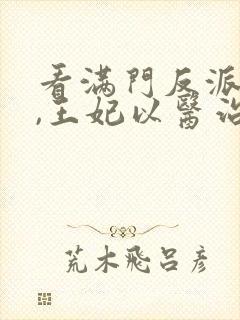 看滿門反派
,王妃以醫治
荒木飛呂彥